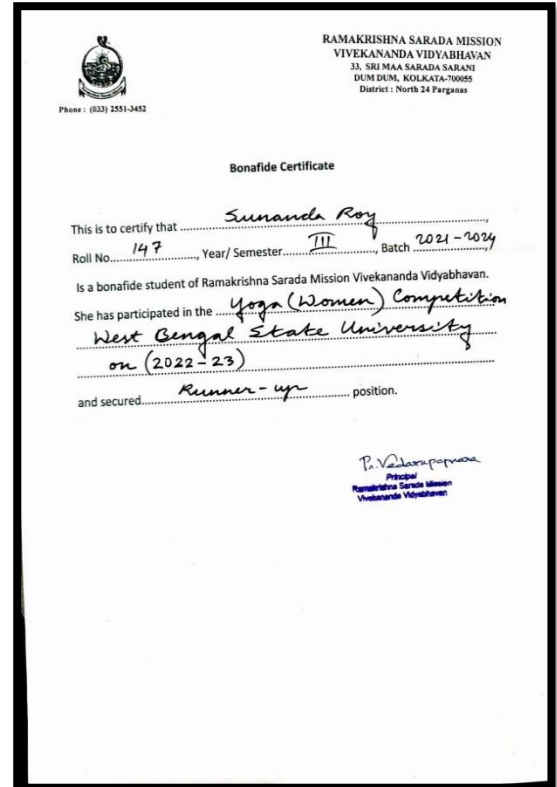 RAMAKRISHNA SARADA MISSION
VIVEKANANDA VIDYABHAVAN
33, SRI MAA SARADA SARANI
DUM DUM, KOLKATA-700055
District : North 24 Parganas
Phone : (033) 2551-3452
Bonafide Certificate
This is to certify that Sunanda Roy,
Roll No. 147, Year/ Semester III, Batch 2021-2024,
Is a bonafide student of Ramakrishna Sarada Mission Vivekananda Vidyabhavan.
She has participated in the Yoga (Women) Competition
West Bengal State University
on (2022-23)
and secured Runner-up position.
Principal
Ramakrishna Sarada Mission
Vivekananda Vidyabhavan